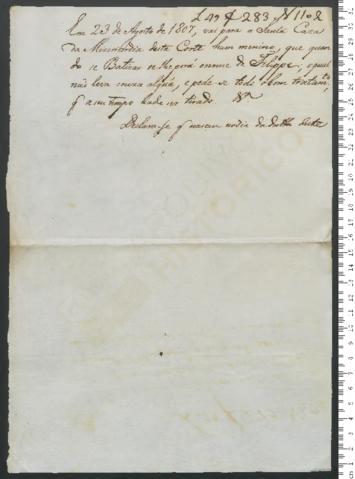 L 49 f 283 N 1102
Em 23 de Agosto de 1807, vai para a Santa Caza
da Mizericordia desta Corte hum menino, que quan
do se Batizar se lhe porá o nome de Felippe; o qual
não leva couza algũa, e pede-se todo o bom tratam.to
q a seu tempo hade ser tirado
Declara-se q nasceu no dia da datta desta